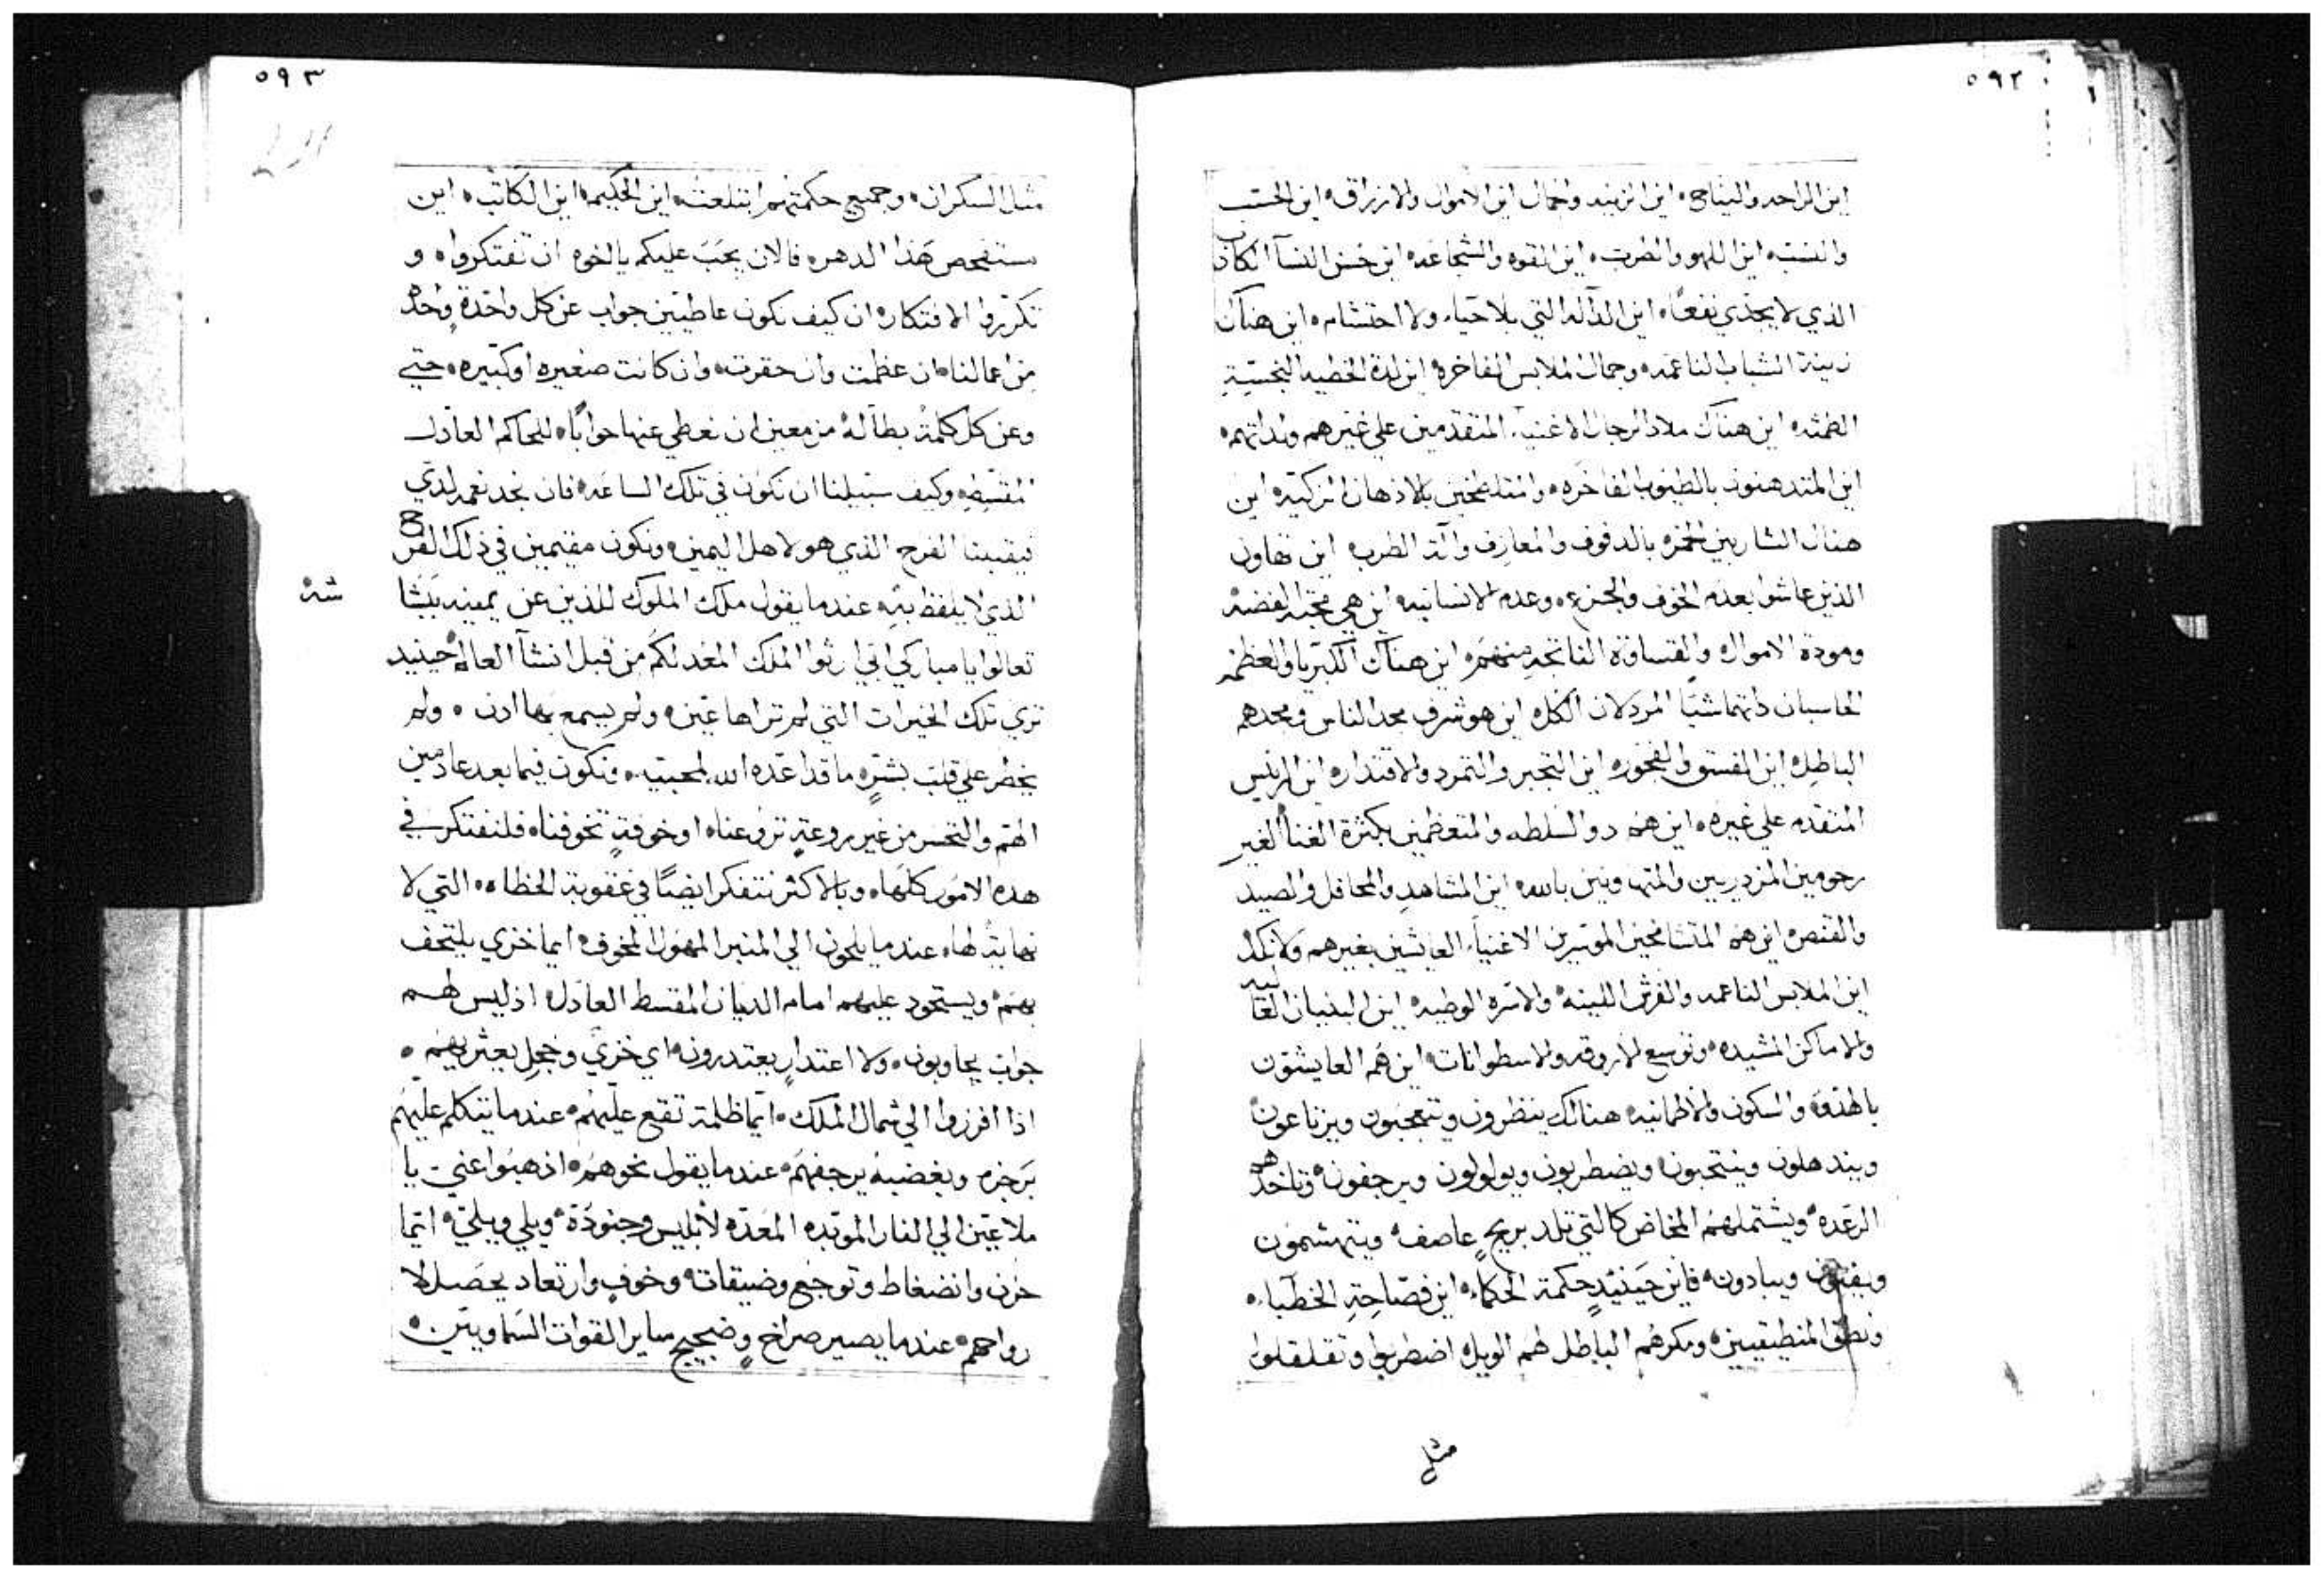 ٥٩٢
اين الراحه والنياح اين الزينه والجمال اين الاموال والارزاق اين الحسب
والنسب اين اللهو والطرب اين القوه والشجاعه اين حسن النسآ الكاذب
الذي لا يجدي نفعًا اين الدآله التي بلا حياء ولا احتشام اين هناك
زينة الشباب الناعمه وجمال الملابس الفاخره اين لذة الخطيه النجسة
الطمثه اين هناك ملاذ الرجال الاغنياء المتقدمين علي غيرهم ولداتهم
اين المتدهنون بالطيوب الفاخره والمتلطخين بالادهان الزكيه اين
هناك الشاربين الخمر بالدفوف والمعازف وآلة الطرب اين تهاون
الذين عاشوا بعدم الخوف والجزع وعدم الانسانيه اين هي محبة الفضه
ومودة الاموال والقساوة الناتجه منهم اين هناك الكبريا والعظمه
الحاسبان ذاتهما شيًا المردلان الكل اين هو شرف مجد الناس ومجدهم
الباطل اين الفسق والفجور اين التجبر والتمرد والاقتدار اين الريس
المتقدم علي غيره اين هم دو السلطه والمتعظمين بكثرة الغنا الغير
رحومين المزدريين والمتهاونين بالله اين المشاهد والمحافل والصيد
والقنص اين هم المتشامخين الموسرين الاغنياء العايشين بغيرهم ولا نكد
اين الملابس الناعمه والفرش اللينه والاسره الوطيه اين البنيان العاليه
والاماكن المشيده وتوسيع الاروقه والاسطوانات اين هم العايشون
بالهدوّ والسكون والاطمانيه هنالك ينظرون ويتعجبون ويرتاعون
ويندهلون وينتحبون ويضطربون ويولولون ويرجفون وتاخدهم
الرعده ويشتملهم المخاض كالتي تلد بريح عاصف ويتهشمون
ويفنون ويبادون فاين حينيدٍ حكمة الحكماء اين فصاحة الخطباء
ونطق المنطيقيين ومكرهم الباطل لهم الويل اضطربوا وتقلقلوا
مثل
٥٩٣
مثل السكران وجميع حكمتهم ابتلعت اين الحكيم اين الكاتب اين
مستفحص هذا الدهر فالان يجب عليكم يا اخوه ان تفتكروا و
تكرروا الافتكار ان كيف نكون عاطيين جواب عن كل واحدة وحده
من اعمالنا ان عظمت وان حقرت وان كانت صغيره او كبيره حتي
وعن كل كلمة بطاله مزمعين ان نعطي عنها جوابًا للحاكم العادل
المقسط وكيف سبيلنا ان نكون في تلك الساعه فان نجد نعمه لدي
فيقبلنا الفرح الذي هو لاهل اليمين ونكون مقيمين في ذلك الفرح
الذي لا يلفظ به عندما يقول ملك الملوك للذين عن يمينه بشا
شه
تعالوا يا مباركي ابي ارثوا الملك المعد لكم من قبل انشآ العالم حينيد
نري تلك الخيرات التي لم تراها عين ولم يسمع بها ادن ولم
يخطر علي قلب بشرٍ ما قد اعده الله لمحبيه ونكون فيما بعد عادمين
الهم والتحسر من غير روعةٍ تروعنا او خوفةٍ تخوفنا فلنفتكر في
هده الامور كلها وبالاكثر نتفكر ايضًا في عقوبة الخطاه التي لا
نهاية لها عندما يلجون الي المنبر المهول المخوف ايما خزي يلتحف
بهم ويستحود عليهم امام الديان المقسط العادل اذ ليس لهم
جواب يجاوبون ولا اعتدارٍ يعتدرون اي خزي وخجل يعتريهم
اذا افرزوا الي شمال الملك ايما ظلمة تقع عليهم عندما يتكلم عليهم
برجزه وبغضبه يرجفهم عندما يقول نحوهم اذهبوا عني يا
ملاعين الي النار الموبده المعده لابليس وجنوده ويلي ويلي ايما
حزن وانضغاط وتوجع وضيقات وخوف وارتعاد يحصل لا
رواحهم عندما يصير صراخ وضجيج ساير القوات السماويين